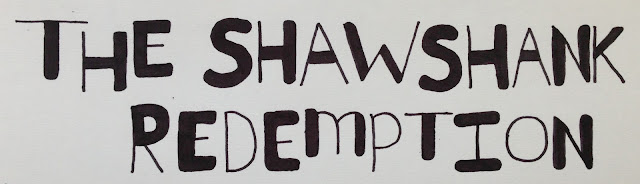 THE SHAWSHANK
REDEMPTION